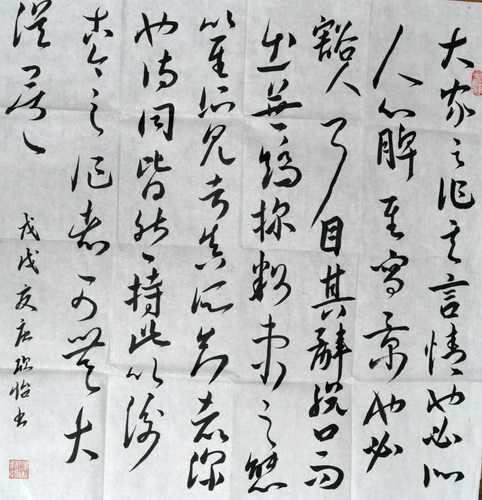 大家之作其言情也必沁
人心脾其寫景也必
豁人耳目其辭脱口而
出無矯揉粧束之態
以其所見者真所知者深
也诗词皆然持此以衡
古今之作者可無大
误矣
戊戌夏怡书